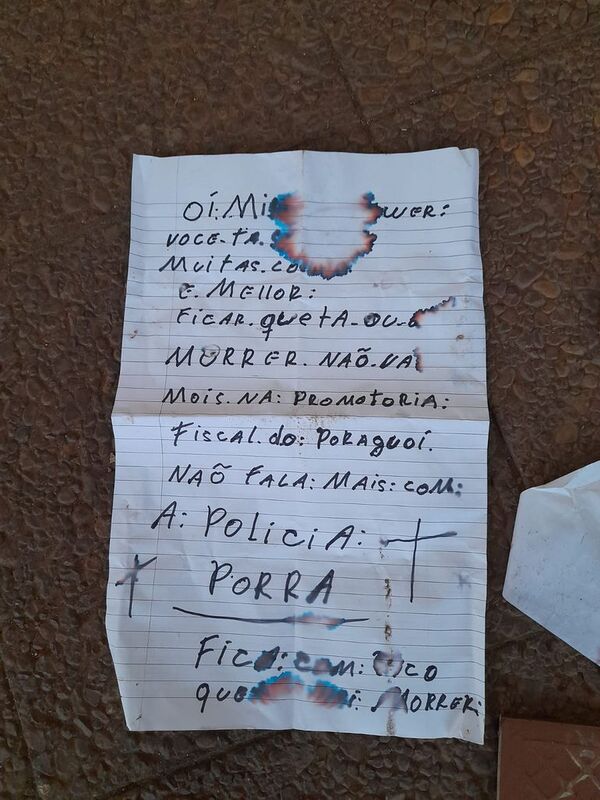 OÍ: Mi WER:
VOCE. TA.
MUiTAS. CO
E. MELLOR:
FICAR. queTA. OU.
MORRER. NAÕ. VA
MOiS. NA: PROMOTORiA:
Fiscal. do: PORAGUOÍ.
NAÕ FALA: MAiS: COM:
A: POLiCiA:
PORRA
FiCA: COM:
que MORRER: